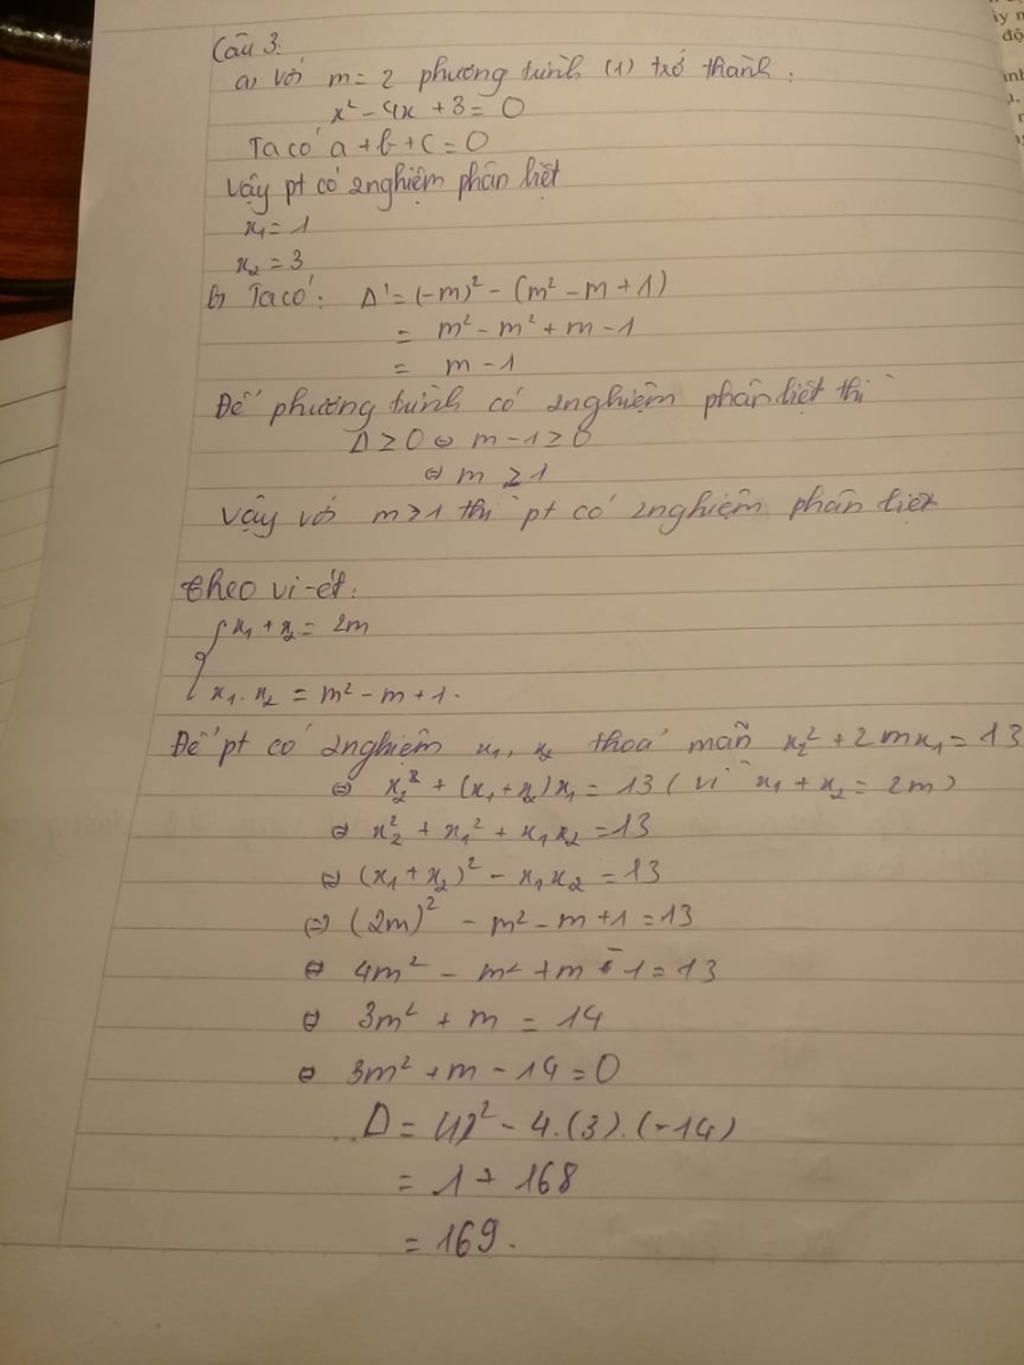 Câu 3:
a) Với m = 2 phương trình (1) trở thành:
x² - 4x + 3 = 0
Ta có a + b + c = 0
Vậy pt có 2 nghiệm phân biệt
x₁ = 1
x₂ = 3
b) Ta có: Δ' = (-m)² - (m² - m + 1)
= m² - m² + m - 1
= m - 1
Để phương trình có 2 nghiệm phân biệt thì
Δ ≥ 0 ⇔ m - 1 ≥ 0
⇔ m ≥ 1
Vậy với m > 1 thì pt có 2 nghiệm phân biệt
theo vi-ét:
{ x₁ + x₂ = 2m
x₁ . x₂ = m² - m + 1.
Để pt có 2 nghiệm x₁, x₂ thoả mãn x₂² + 2mx₁ = 13
⇔ x₂² + (x₁ + x₂)x₁ = 13 ( vì x₁ + x₂ = 2m)
⇔ x₂² + x₁² + x₁x₂ = 13
⇔ (x₁ + x₂)² - x₁x₂ = 13
⇔ (2m)² - m² - m + 1 = 13
⇔ 4m² - m² + m - 1 = 13
⇔ 3m² + m = 14
⇔ 3m² + m - 14 = 0
Δ = (1)² - 4.(3).(-14)
= 1 + 168
= 169.